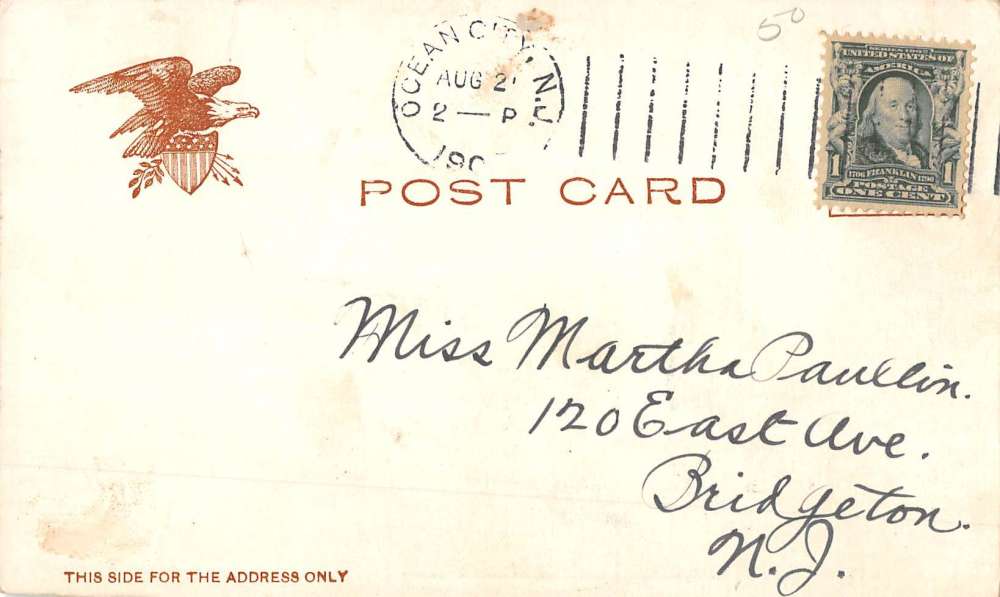 50
OCEAN CITY, N.J.
AUG 2
2 — P
190
SERIES 1902
UNITED STATES OF
AMERICA
1 1706 FRANKLIN 1790 1
POSTAGE
ONE CENT
POST CARD
Miss Martha Paullin.
120 East Ave.
Bridgeton.
N.J.
THIS SIDE FOR THE ADDRESS ONLY